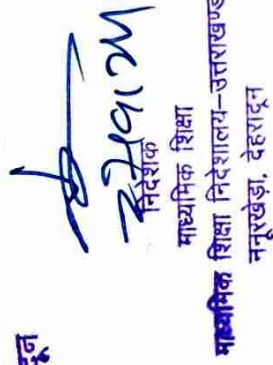 दून
निदेशक
माध्यमिक शिक्षा
माध्यमिक शिक्षा निदेशालय–उत्तराखण्ड
ननूरखेड़ा, देहरादून